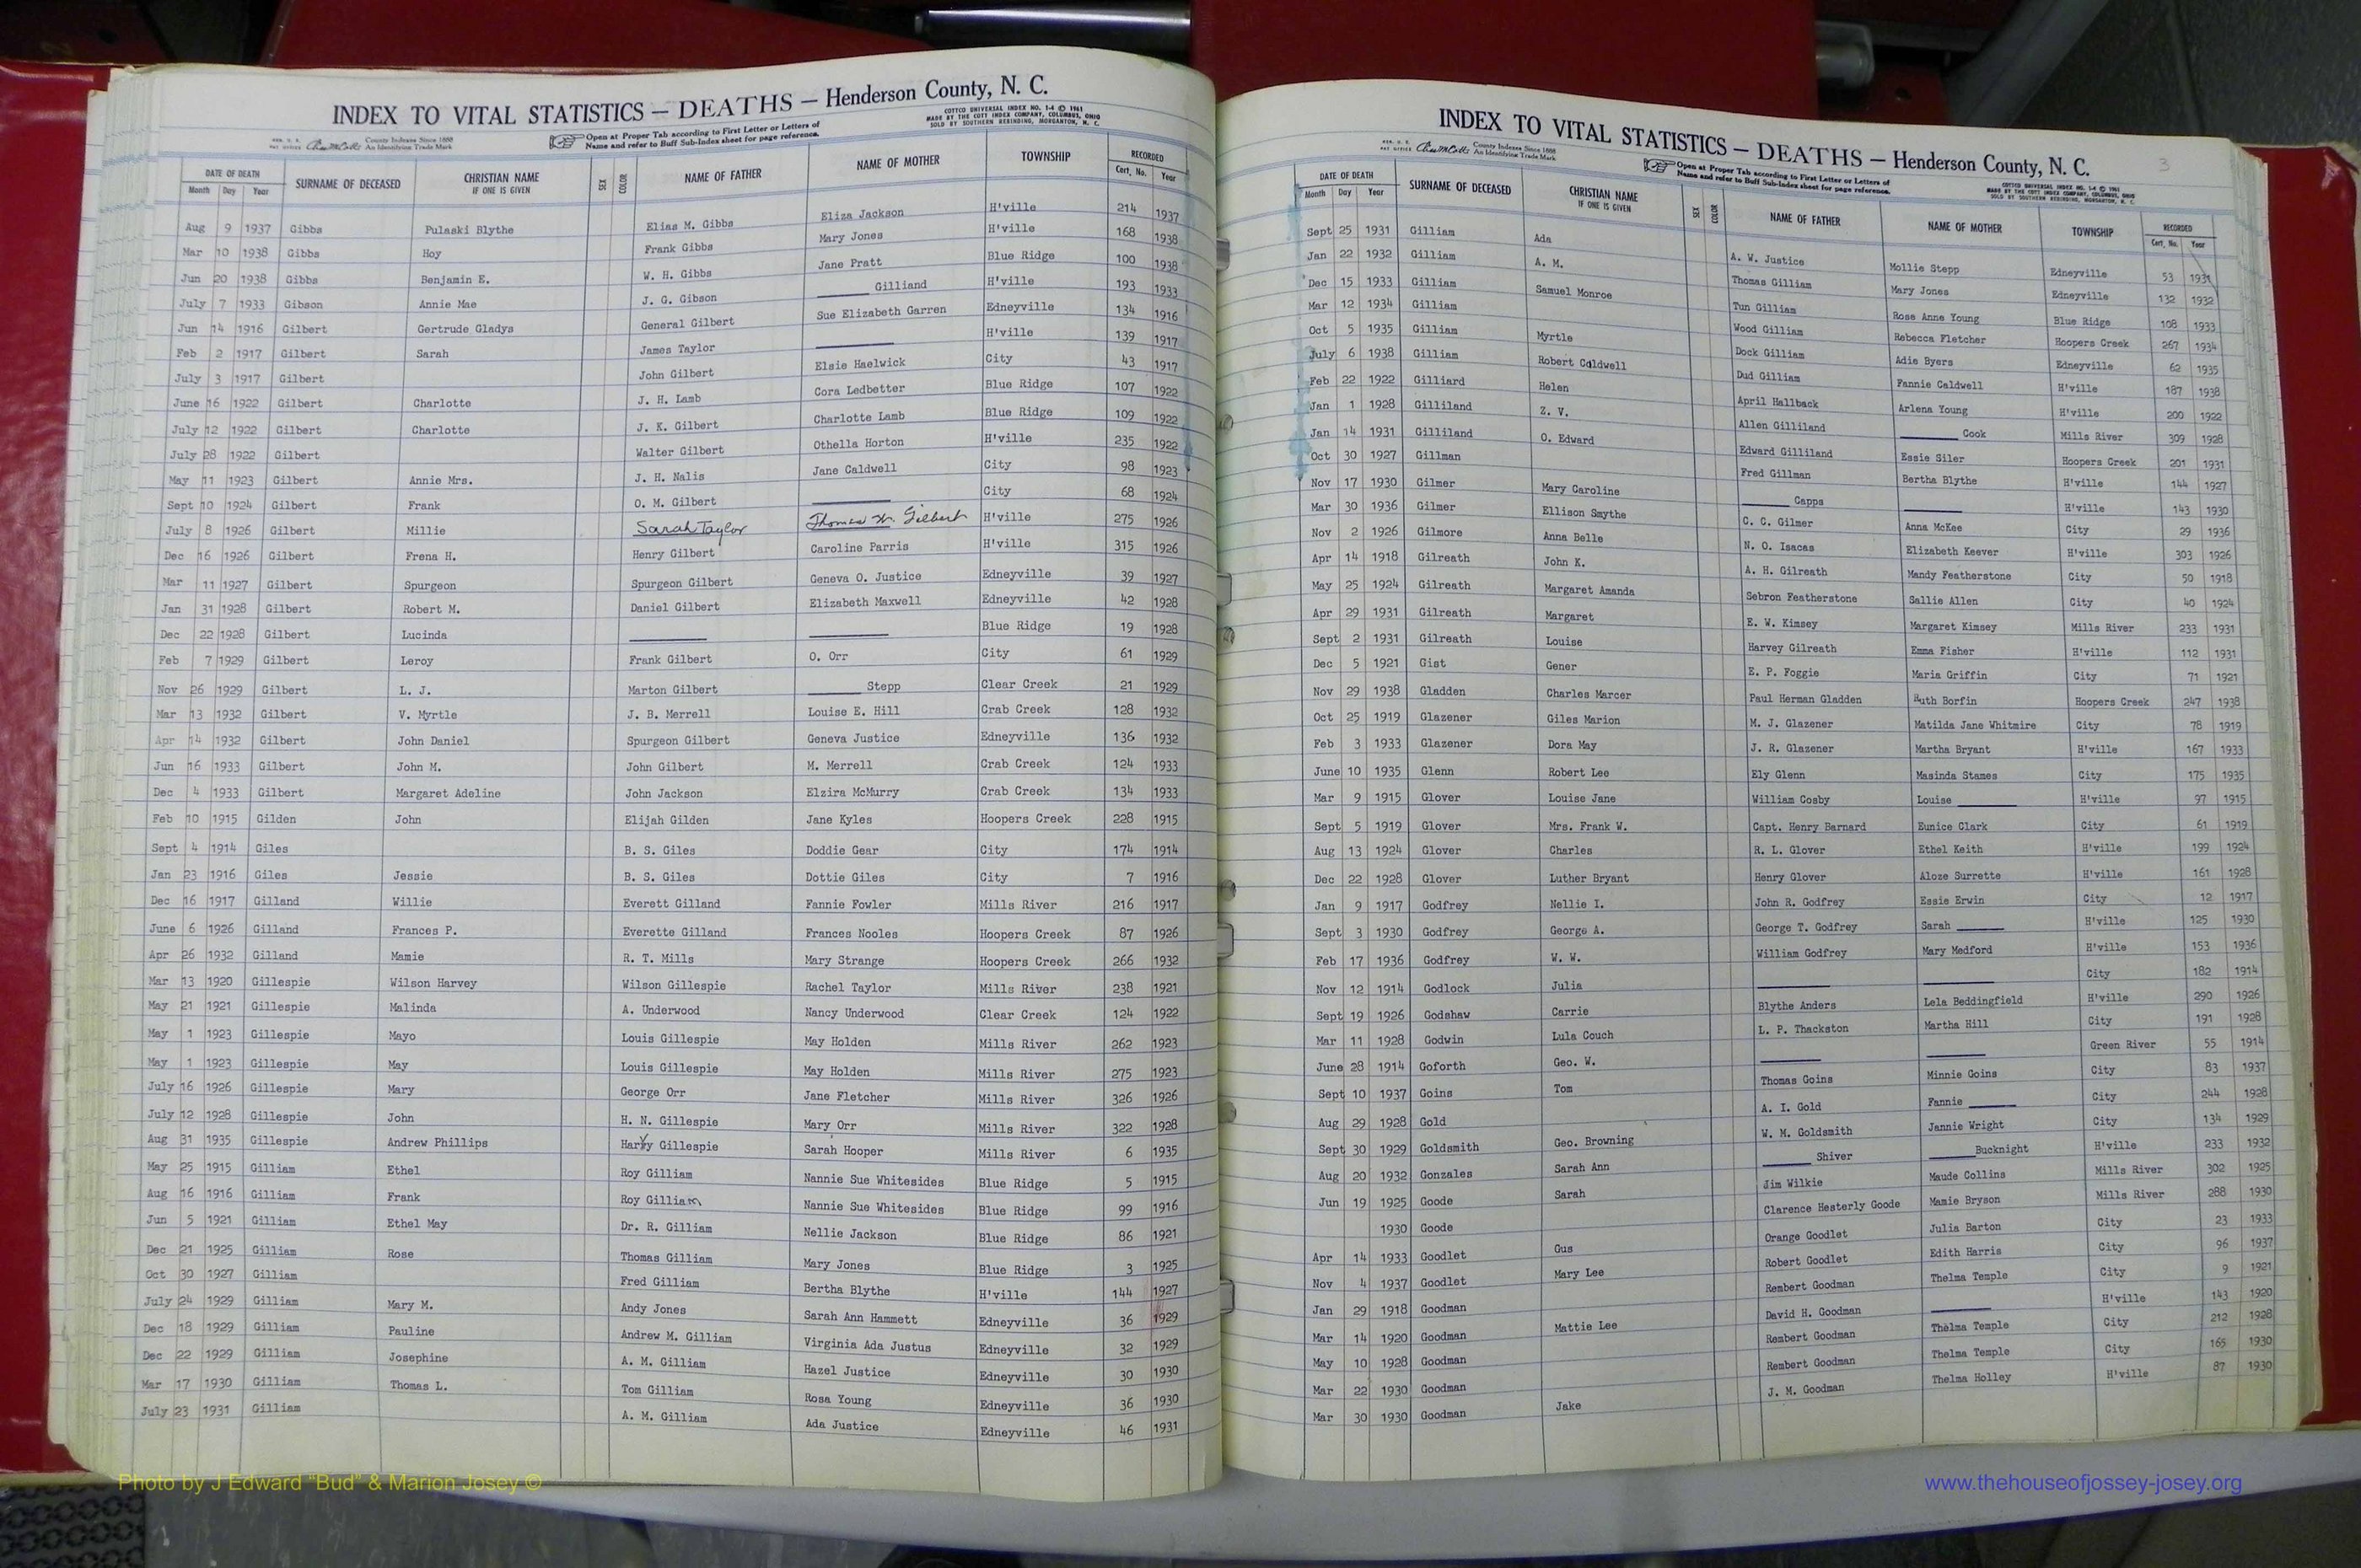 INDEX TO VITAL STATISTICS — DEATHS — Henderson County, N. C.
County Indexes Since 1888
An Identifying Trade Mark
Open at Proper Tab according to First Letter or Letters of
Name and refer to Buff Sub-Index sheet for page reference.
COTTCO UNIVERSAL INDEX NO. 1-4 © 1961
MADE BY THE COTT INDEX COMPANY, COLUMBUS, OHIO
SOLD BY SOUTHERN REBINDING, MORGANTON, N. C.
DATE OF DEATH SURNAME OF DECEASED CHRISTIAN NAME IF ONE IS GIVEN SEX COLOR NAME OF FATHER NAME OF MOTHER TOWNSHIP RECORDED
Month Day Year Cert. No. Year
Aug 9 1937 Gibbs Pulaski Blythe Elias M. Gibbs Eliza Jackson H'ville 214 1937
Mar 10 1938 Gibbs Hoy Frank Gibbs Mary Jones H'ville 168 1938
Jun 20 1938 Gibbs Benjamin E. W. H. Gibbs Jane Pratt Blue Ridge 100 1938
July 7 1933 Gibson Annie Mae J. G. Gibson ____ Gilliand H'ville 193 1933
Jun 14 1916 Gilbert Gertrude Gladys General Gilbert Sue Elizabeth Garren Edneyville 134 1916
Feb 2 1917 Gilbert Sarah James Taylor ____ H'ville 139 1917
July 3 1917 Gilbert John Gilbert Elsie Haelwick City 43 1917
June 16 1922 Gilbert Charlotte J. H. Lamb Cora Ledbetter Blue Ridge 107 1922
July 12 1922 Gilbert Charlotte J. K. Gilbert Charlotte Lamb Blue Ridge 109 1922
July 28 1922 Gilbert Walter Gilbert Othella Horton H'ville 235 1922
May 11 1923 Gilbert Annie Mrs. J. H. Nalis Jane Caldwell City 98 1923
Sept 10 1924 Gilbert Frank O. M. Gilbert ____ City 68 1924
July 8 1926 Gilbert Millie Sarah Taylor Thomas W. Gilbert H'ville 275 1926
Dec 16 1926 Gilbert Frena H. Henry Gilbert Caroline Parris H'ville 315 1926
Mar 11 1927 Gilbert Spurgeon Spurgeon Gilbert Geneva O. Justice Edneyville 39 1927
Jan 31 1928 Gilbert Robert M. Daniel Gilbert Elizabeth Maxwell Edneyville 42 1928
Dec 22 1928 Gilbert Lucinda ____ ____ Blue Ridge 19 1928
Feb 7 1929 Gilbert Leroy Frank Gilbert O. Orr City 61 1929
Nov 26 1929 Gilbert L. J. Marton Gilbert ____ Stepp Clear Creek 21 1929
Mar 13 1932 Gilbert V. Myrtle J. B. Merrell Louise E. Hill Crab Creek 128 1932
Apr 14 1932 Gilbert John Daniel Spurgeon Gilbert Geneva Justice Edneyville 136 1932
Jun 16 1933 Gilbert John M. John Gilbert M. Merrell Crab Creek 124 1933
Dec 4 1933 Gilbert Margaret Adeline John Jackson Elzira McMurry Crab Creek 134 1933
Feb 10 1915 Gilden John Elijah Gilden Jane Kyles Hoopers Creek 228 1915
Sept 4 1914 Giles B. S. Giles Doddie Gear City 174 1914
Jan 23 1916 Giles Jessie B. S. Giles Dottie Giles City 7 1916
Dec 16 1917 Gilland Willie Everett Gilland Fannie Fowler Mills River 216 1917
June 6 1926 Gilland Frances P. Everette Gilland Frances Nooles Hoopers Creek 87 1926
Apr 26 1932 Gilland Mamie R. T. Mills Mary Strange Hoopers Creek 266 1932
Mar 13 1920 Gillespie Wilson Harvey Wilson Gillespie Rachel Taylor Mills River 238 1921
May 21 1921 Gillespie Malinda A. Underwood Nancy Underwood Clear Creek 124 1922
May 1 1923 Gillespie Mayo Louis Gillespie May Holden Mills River 262 1923
May 1 1923 Gillespie May Louis Gillespie May Holden Mills River 275 1923
July 16 1926 Gillespie Mary George Orr Jane Fletcher Mills River 326 1926
July 12 1928 Gillespie John H. N. Gillespie Mary Orr Mills River 322 1928
Aug 31 1935 Gillespie Andrew Phillips Harry Gillespie Sarah Hooper Mills River 6 1935
May 25 1915 Gilliam Ethel Roy Gilliam Nannie Sue Whitesides Blue Ridge 5 1915
Aug 16 1916 Gilliam Frank Roy Gilliam Nannie Sue Whitesides Blue Ridge 99 1916
Jun 5 1921 Gilliam Ethel May Dr. R. Gilliam Nellie Jackson Blue Ridge 86 1921
Dec 21 1925 Gilliam Rose Thomas Gilliam Mary Jones Blue Ridge 3 1925
Oct 30 1927 Gilliam Fred Gilliam Bertha Blythe H'ville 144 1927
July 24 1929 Gilliam Mary M. Andy Jones Sarah Ann Hammett Edneyville 36 1929
Dec 18 1929 Gilliam Pauline Andrew M. Gilliam Virginia Ada Justus Edneyville 32 1929
Dec 22 1929 Gilliam Josephine A. M. Gilliam Hazel Justice Edneyville 30 1930
Mar 17 1930 Gilliam Thomas L. Tom Gilliam Rosa Young Edneyville 36 1930
July 23 1931 Gilliam A. M. Gilliam Ada Justice Edneyville 46 1931
INDEX TO VITAL STATISTICS — DEATHS — Henderson County, N. C.
3
County Indexes Since 1888
An Identifying Trade Mark
Open at Proper Tab according to First Letter or Letters of
Name and refer to Buff Sub-Index sheet for page reference.
COTTCO UNIVERSAL INDEX NO. 1-4 © 1961
MADE BY THE COTT INDEX COMPANY, COLUMBUS, OHIO
SOLD BY SOUTHERN REBINDING, MORGANTON, N. C.
DATE OF DEATH SURNAME OF DECEASED CHRISTIAN NAME IF ONE IS GIVEN SEX COLOR NAME OF FATHER NAME OF MOTHER TOWNSHIP RECORDED
Month Day Year Cert. No. Year
Sept 25 1931 Gilliam Ada A. W. Justice Mollie Stepp Edneyville 53 1931
Jan 22 1932 Gilliam A. M. Thomas Gilliam Mary Jones Edneyville 132 1932
Dec 15 1933 Gilliam Samuel Monroe Tun Gilliam Rose Anne Young Blue Ridge 108 1933
Mar 12 1934 Gilliam Wood Gilliam Rebecca Fletcher Hoopers Creek 267 1934
Oct 5 1935 Gilliam Myrtle Dock Gilliam Adie Byers Edneyville 62 1935
July 6 1938 Gilliam Robert Caldwell Dud Gilliam Fannie Caldwell H'ville 187 1938
Feb 22 1922 Gilliard Helen April Hallback Arlena Young H'ville 200 1922
Jan 1 1928 Gilliland Z. V. Allen Gilliland ____ Cook Mills River 309 1928
Jan 14 1931 Gilliland O. Edward Edward Gilliland Essie Siler Hoopers Creek 201 1931
Oct 30 1927 Gillman Fred Gillman Bertha Blythe H'ville 144 1927
Nov 17 1930 Gilmer Mary Caroline ____ Capps ____ H'ville 143 1930
Mar 30 1936 Gilmer Ellison Smythe C. C. Gilmer Anna McKee City 29 1936
Nov 2 1926 Gilmore Anna Belle N. O. Isacas Elizabeth Keever H'ville 303 1926
Apr 14 1918 Gilreath John K. A. H. Gilreath Mandy Featherstone City 50 1918
May 25 1924 Gilreath Margaret Amanda Sebron Featherstone Sallie Allen City 40 1924
Apr 29 1931 Gilreath Margaret E. W. Kimsey Margaret Kimsey Mills River 233 1931
Sept 2 1931 Gilreath Louise Harvey Gilreath Emma Fisher H'ville 112 1931
Dec 5 1921 Gist Gener E. P. Foggie Maria Griffin City 71 1921
Nov 29 1938 Gladden Charles Marcer Paul Herman Gladden Ruth Borfin Hoopers Creek 247 1938
Oct 25 1919 Glazener Giles Marion M. J. Glazener Matilda Jane Whitmire City 78 1919
Feb 3 1933 Glazener Dora May J. R. Glazener Martha Bryant H'ville 167 1933
June 10 1935 Glenn Robert Lee Ely Glenn Masinda Stames City 175 1935
Mar 9 1915 Glover Louise Jane William Cosby Louise ____ H'ville 97 1915
Sept 5 1919 Glover Mrs. Frank W. Capt. Henry Barnard Eunice Clark City 61 1919
Aug 13 1924 Glover Charles R. L. Glover Ethel Keith H'ville 199 1924
Dec 22 1928 Glover Luther Bryant Henry Glover Aloze Surrette H'ville 161 1928
Jan 9 1917 Godfrey Nellie I. John R. Godfrey Essie Erwin City 12 1917
Sept 3 1930 Godfrey George A. George T. Godfrey Sarah ____ H'ville 125 1930
Feb 17 1936 Godfrey W. W. William Godfrey Mary Medford H'ville 153 1936
Nov 12 1914 Godlock Julia ____ ____ City 182 1914
Sept 19 1926 Godshaw Carrie Blythe Anders Lela Beddingfield H'ville 290 1926
Mar 11 1928 Godwin Lula Couch L. P. Thackston Martha Hill City 191 1928
June 28 1914 Goforth Geo. W. ____ ____ Green River 55 1914
Sept 10 1937 Goins Tom Thomas Goins Minnie Goins City 83 1937
Aug 29 1928 Gold A. I. Gold Fannie ____ City 244 1928
Sept 30 1929 Goldsmith Geo. Browning W. M. Goldsmith Jannie Wright City 134 1929
Aug 20 1932 Gonzales Sarah Ann ____ Shiver ____ Bucknight H'ville 233 1932
Jun 19 1925 Goode Sarah Jim Wilkie Maude Collins Mills River 302 1925
1930 Goode Clarence Hesterly Goode Mamie Bryson Mills River 288 1930
Apr 14 1933 Goodlet Gus Orange Goodlet Julia Barton City 23 1933
Nov 4 1937 Goodlet Mary Lee Robert Goodlet Edith Harris City 96 1937
Jan 29 1918 Goodman Rembert Goodman Thelma Temple City 9 1921
Mar 14 1920 Goodman Mattie Lee David H. Goodman ____ H'ville 143 1920
May 10 1928 Goodman Rembert Goodman Thelma Temple City 212 1928
Mar 22 1930 Goodman Rembert Goodman Thelma Temple City 165 1930
Mar 30 1930 Goodman Jake J. M. Goodman Thelma Holley H'ville 87 1930
Photo by J Edward "Bud" & Marion Josey ©
www.thehouseofjossey-josey.org